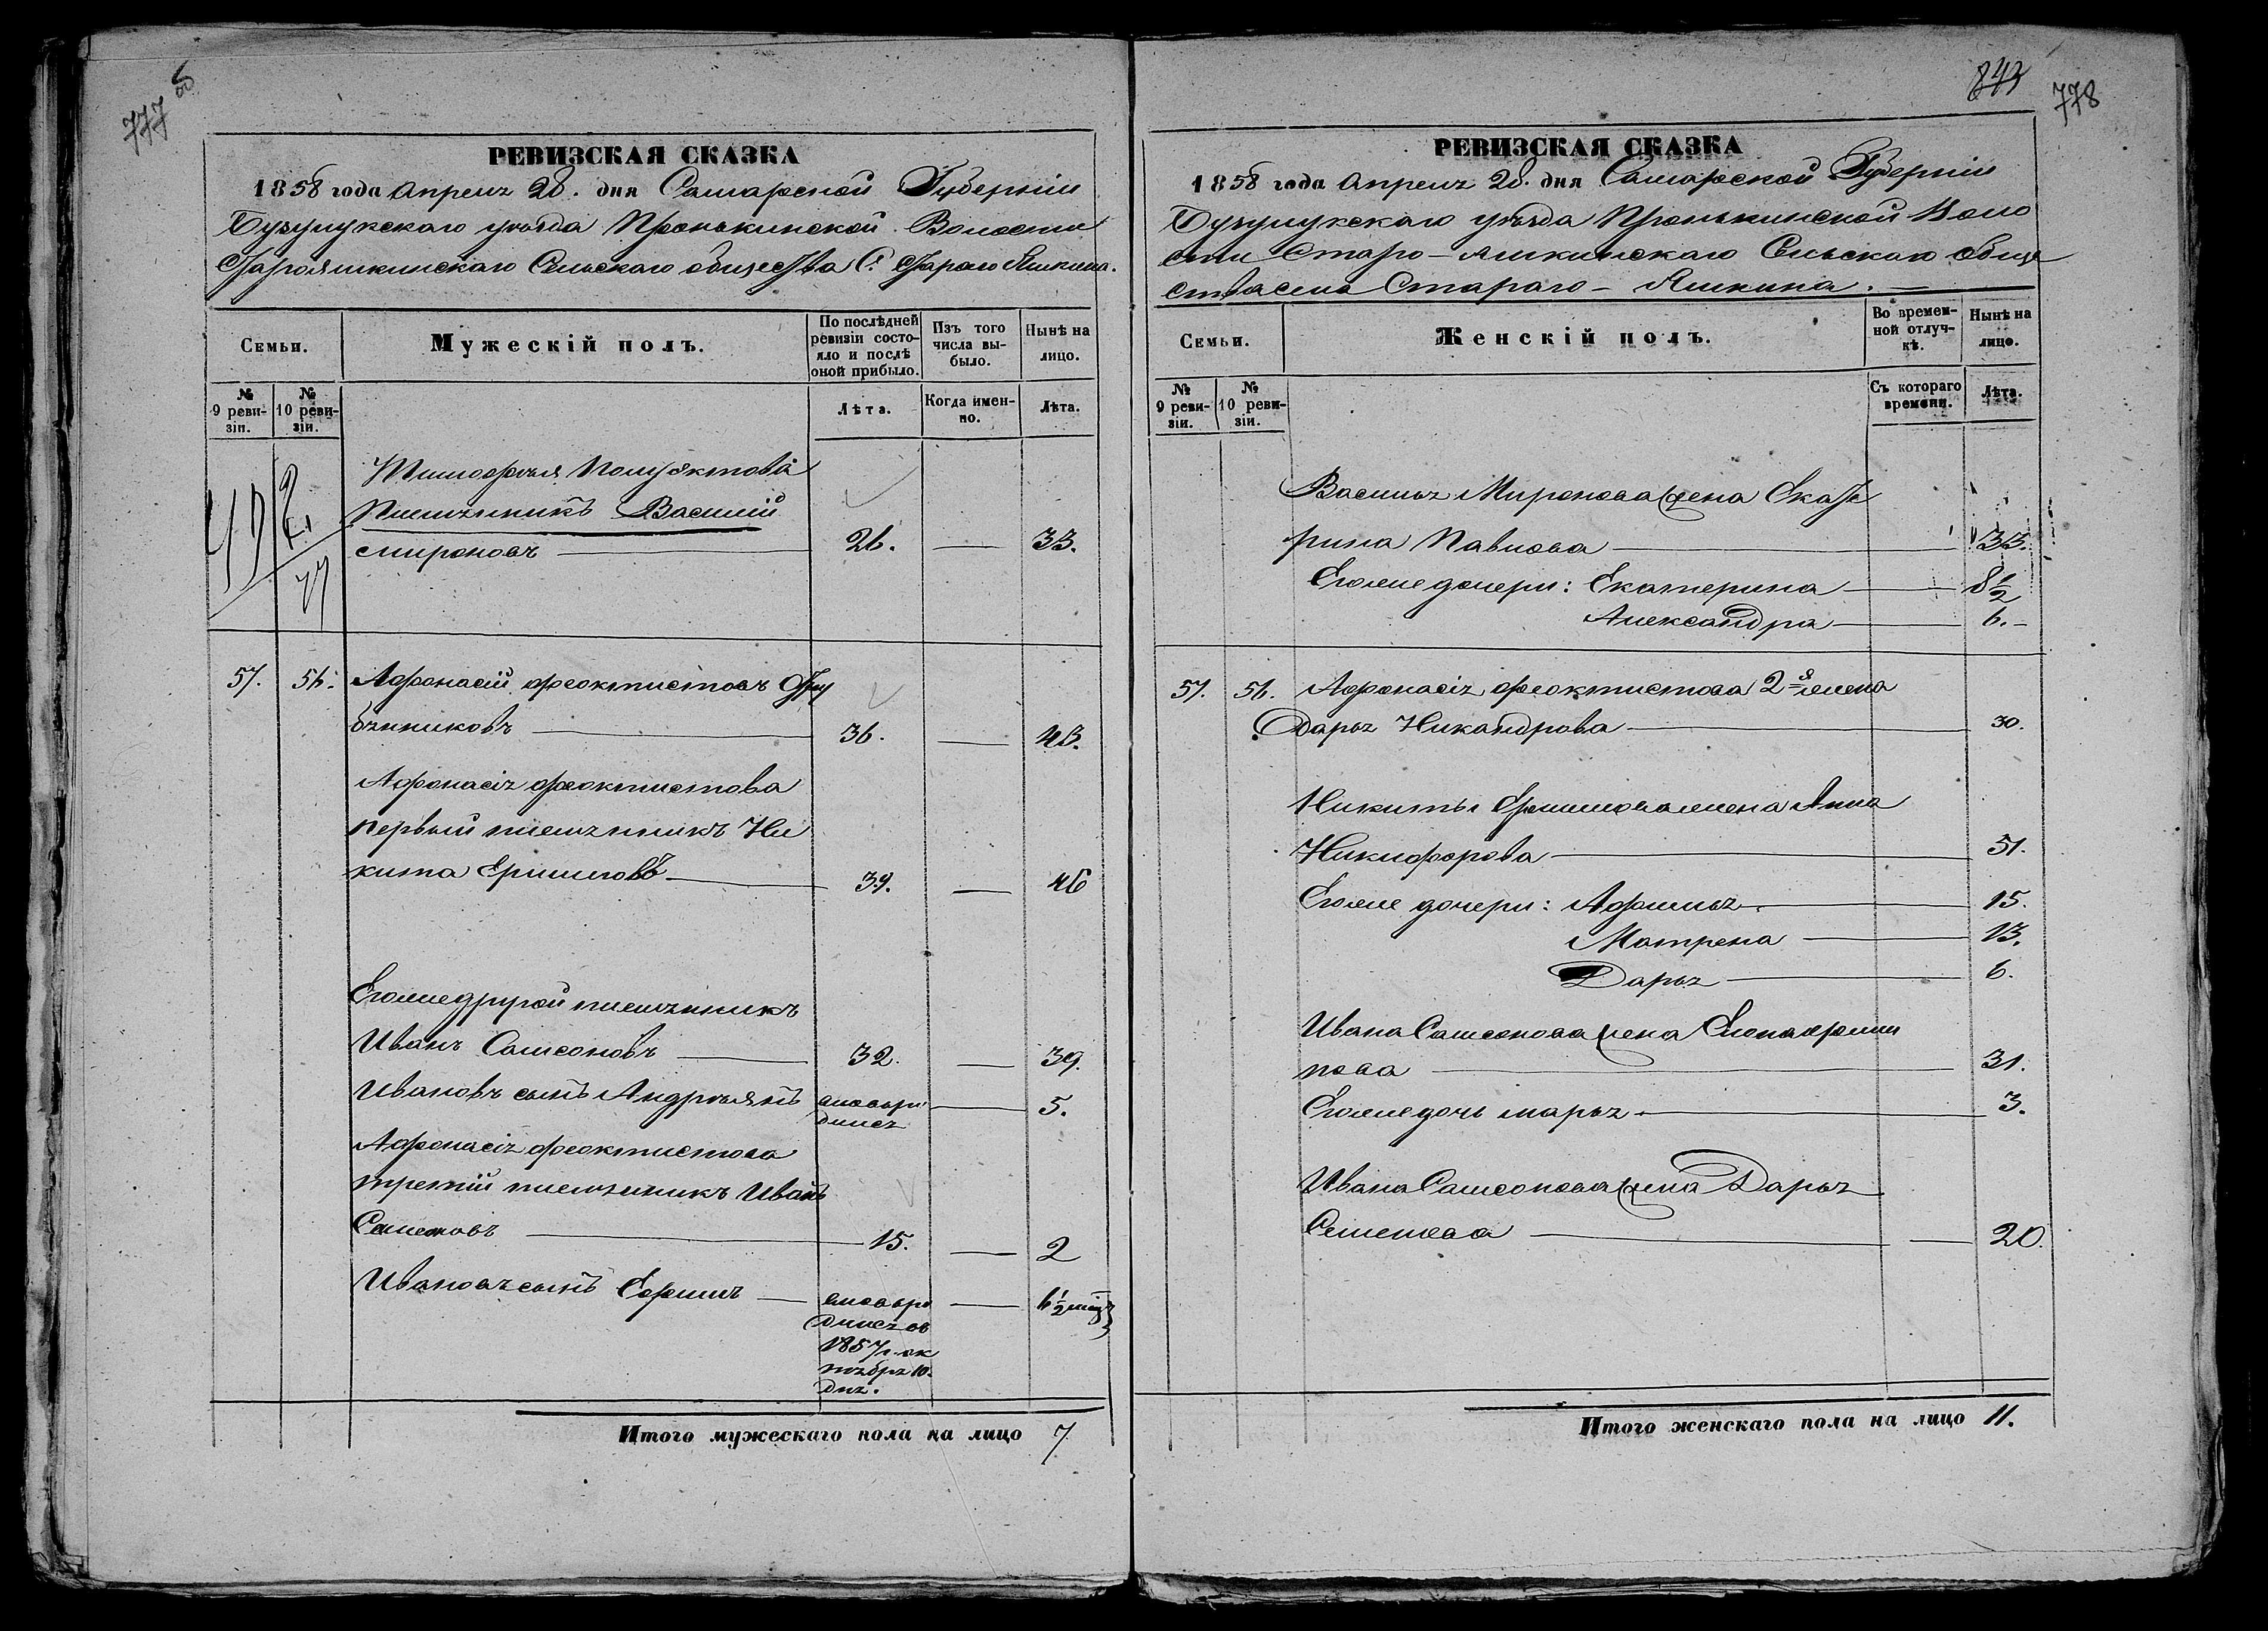 777 об
РЕВИЗСКАЯ СКАЗКА
1858 года Апреля 28. дня Самарской Губернии
Бузулукскаго уѣзда Пронькинской Волости
Старояшкинскаго Сельскаго общества С. Стараго Яшкина.
Семьи.
Мужескій полъ.
По послѣдней ревизіи состояло и послѣ оной прибыло.
Изъ того числа выбыло.
Нынѣ на лицо.
№ 9 ревизіи.
№ 10 ревизіи.
Лѣта.
Когда именно.
Лѣта.
Тимофея Полуэктова
Племянникъ Василій
Мироновъ — 26. — 33.
57. 56. Афонасій Феоктистовъ
— 36. — 43.
Афонасія Феоктистова
первый племянникъ Ни
кита Ефимовъ — 39. — 46
Егоже другой племянникъ
Иванъ Самсоновъ — 32. — 39.
Ивановъ сынъ Андреянъ
— 5.
Афонасія Феоктистова
третий племянникъ Иванъ
Самсоновъ — 15. — 2
Ивановъ сынъ Ефимъ — — 6½
1857 г. ок
тября 10.
дня.
Итого мужескаго пола на лицо 7
843
778
РЕВИЗСКАЯ СКАЗКА
1858 года Апреля 28. дня Самарской Губернии
Бузулукскаго уѣзда Пронькинской Воло
сти Старо-Яшкинскаго Сельскаго обще
ства села Стараго-Яшкина.
Семьи.
Женскій полъ.
Во временной отлучкѣ.
Нынѣ на лицо.
№ 9 ревизіи.
№ 10 ревизіи.
Съ котораго времени.
Лѣта.
Василья Миронова жена Екате
рина Павлова — 33.
Егоже дочери: Екатерина — 8½
Александра — 6.
57. 56. Афонасія Феоктистова 2я жена
Дарья Никандрова — 30.
Никиты Ефимова жена Анна
Никифорова — 51.
Егоже дочери: Афимья — 15.
Матрена — 13.
Дарья — 6.
Ивана Самсонова жена
нова — 31.
Егоже дочь Марья — 3.
Ивана Самсонова жена Дарья
Семенова — 20.
Итого женскаго пола на лицо 11.